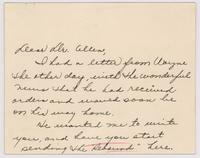 Dear Mr. Allen,
I had a letter from Wayne
the other day, with the wonderful
news that he had received
orders and would soon be
on his way home.
He wanted me to write
you, and have you start
sending the "Rebound" here.